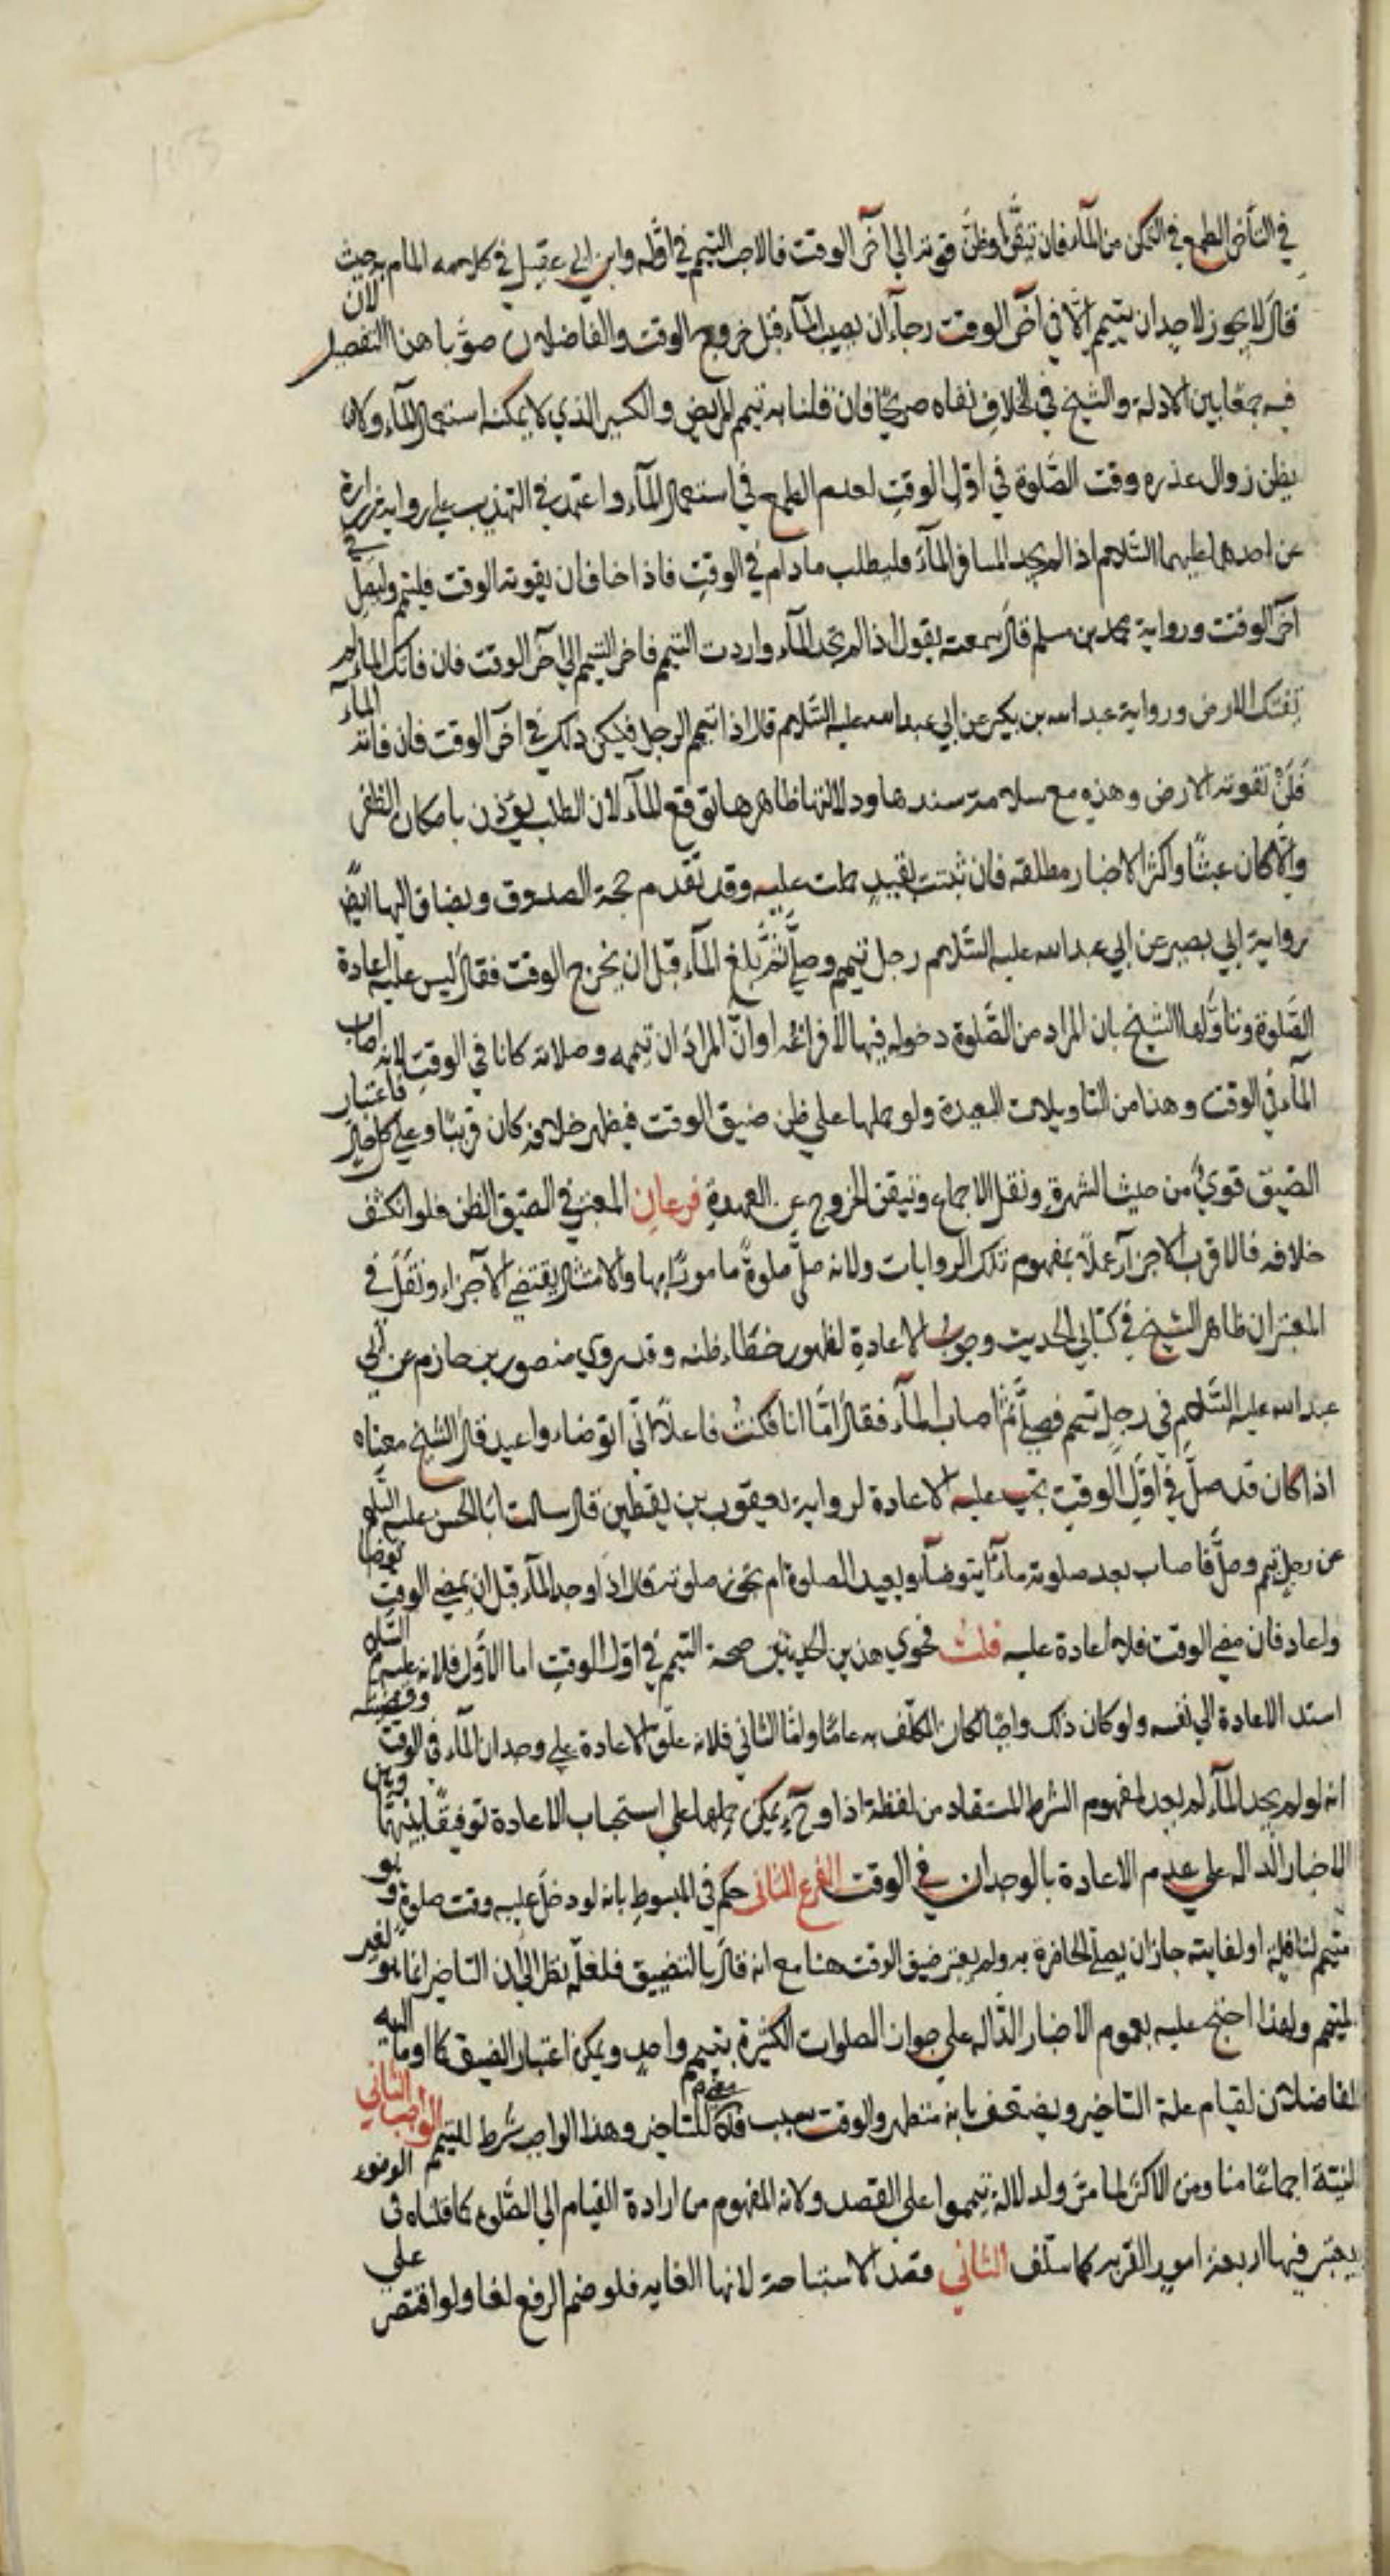 في التأخر الطمع في التمكن من المآء فان تيقن او ظن فوته الي آخر الوقت فالاحب التيمم في اوله وابن ابي عقيل في كلامه المام به حيث
قال لا يجوز لاحد ان يتيمم الّا في آخر الوقت رجآء ان يصيب المآء قبل خروج الوقت والفاضلان صوّبا هذا التفصيل لان
فيه جمعًا بين الادلة والشيخ في الخلاف نفاه صريحًا فان قلنا به تيمم المريض والكسير الذي لا يمكنه استعمال المآء ولا
يظن زوال عذره وقت الصّلوة في اوّل الوقت لعدم الطمع في استعمال المآء واعتمد في التهذيب علي رواية زرارة
عن احدهما عليهما السّلام اذا لم يجد المسافر المآء فليطلب مادام في الوقت فاذا خاف ان يفوته الوقت فليتيمم وليصل في
آخر الوقت ورواية محمد بن مسلم قال سمعته يقول اذا لم تجد المآء واردت التيمم فاخر التيمم الي آخر الوقت فان فاتك المآء لم
تفتك الارض ورواية عبد الله بن بكير عن ابي عبد الله عليه السّلام قال اذا تيمم الرجل فليكن ذلك في آخر الوقت فان فاته المآء
فلن تفوته الارض وهذه مع سلامة سندها ودلالتها ظاهرها توقع المآء لان الطلب يؤذن بامكان الظفر
والّا كان عبثًا واكثر الاخبار مطلقه فان ثبتت تقييد حملت عليه وقد تقدم حجة الصدوق ويضاف اليها ايضًا
رواية ابي بصير عن ابي عبد الله عليه السّلام رجل تيمم وصلّي ثمّ بلغ المآء قبل ان يخرج الوقت فقال ليس عليه اعادة
الصّلوة وتأوّلها الشيخ بان المراد من الصّلوة دخوله فيها لا فراغه او انّ المراد ان تيممه وصلاته كانا في الوقت لانه اصاب
المآء في الوقت وهذا من التاويلات البعيدة ولو حملها علي ظن ضيق الوقت فيظهر خلافه كان قريبًا وعلي كل حال فاعتبار
الضيق قويّ من حيث الشهرة ونقل الاجماع وتيقن الخروج عن العهدة فرعان المعتبر في الضيق الظن فلو انكشف
خلافه فالاقرب الاجزآء عملًا بمفهوم تلك الروايات ولانه صلّي صلوةً مامورًا بها والامتثال يقتضي الاجزاء ونقل في
المعتبر ان ظاهر الشيخ في كتابي الحديث وجوب الاعادة لظهور خطاء ظنه وقد روي منصور بن حازم عن ابي
عبد الله عليه السّلام في رجل تيمم فصلّي ثمّ اصاب المآء فقال امّا انا فكنت فاعلًا انّي اتوضاء واعيد قال الشيخ معناه
اذا كان قد صلّي في اوّل الوقت تجب عليه الاعادة لرواية يعقوب بن يقطين قال سالت ابا الحسن عليه السّلم
عن رجل تيمم وصلّي فاصاب بعد صلوته مآءً ايتوضآء ويعيد الصلوة ام تجوز صلوته قال اذا وجد المآء قبل ان يمضي الوقت توضا
واعاد فان مضي الوقت فلا اعادة عليه قلت فحوي هذين الحديثين صحة التيمم في اوّل الوقت اما الاوّل فلانه عليه السّلام
اسند الاعادة الي نفسه ولو كان ذلك واجبًا لكان المكلّف به عامًا وامّا الثاني فلانه علّق الاعادة علي وجدان المآء في الوقت وقضيته
انه لو لم يجد المآء لم يعد لمفهوم الشرط المستفاد من لفظة اذا وح يمكن حملها علي استحباب الاعادة توفيقًا بينهما وبين
الاخبار الدالة علي عدم الاعادة بالوجدان في الوقت الفرع الثاني حكم في المبسوط بانه لو دخل عليه وقت صلوة وهو
متيمم لنافلة او لفايتة جاز ان يصلّي الحاضرة به ولم يعتبر ضيق الوقت هنا مع انه قال بالتضييق فلعلّه نظر الي ان التاخير انما هو لغير
المتيمم ولهذا احتج عليه بعموم الاخبار الدّاله علي جواز الصلوات الكثيرة بتيمم واحد ويمكن اعتبار الضيق كما اومأ اليه
الفاضلان لقيام علة التاخير ويضعف بانه متطهر والوقت سبب فلا معني للتاخير وهذا الواجب شرط للتيمم الواجب الثاني
النيّة اجماعًا منا ومن الاكثر لما مرّ ولدلالة تيمموا علي القصد ولانه المفهوم من ارادة القيام الي الصّلوة كما قلناه في الوضوء
يعتبر فيها اربعة امور القربه كما سلف الثاني قصد الاستباحة لانها الغايه فلو ضم الرفع لغا ولو اقتصر علي